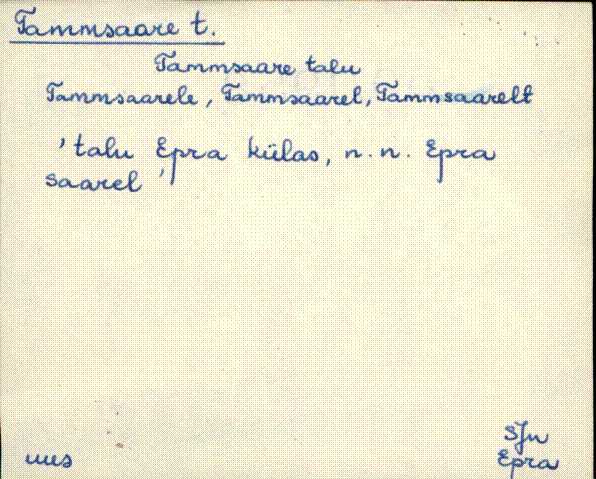 Tammsaare t.
Tammsaare talu
Tammsaarele, Tammsaarel, Tammsaarelt
'talu Epra külas, n.n. Epra
saarel'
SJn
uus
Epra